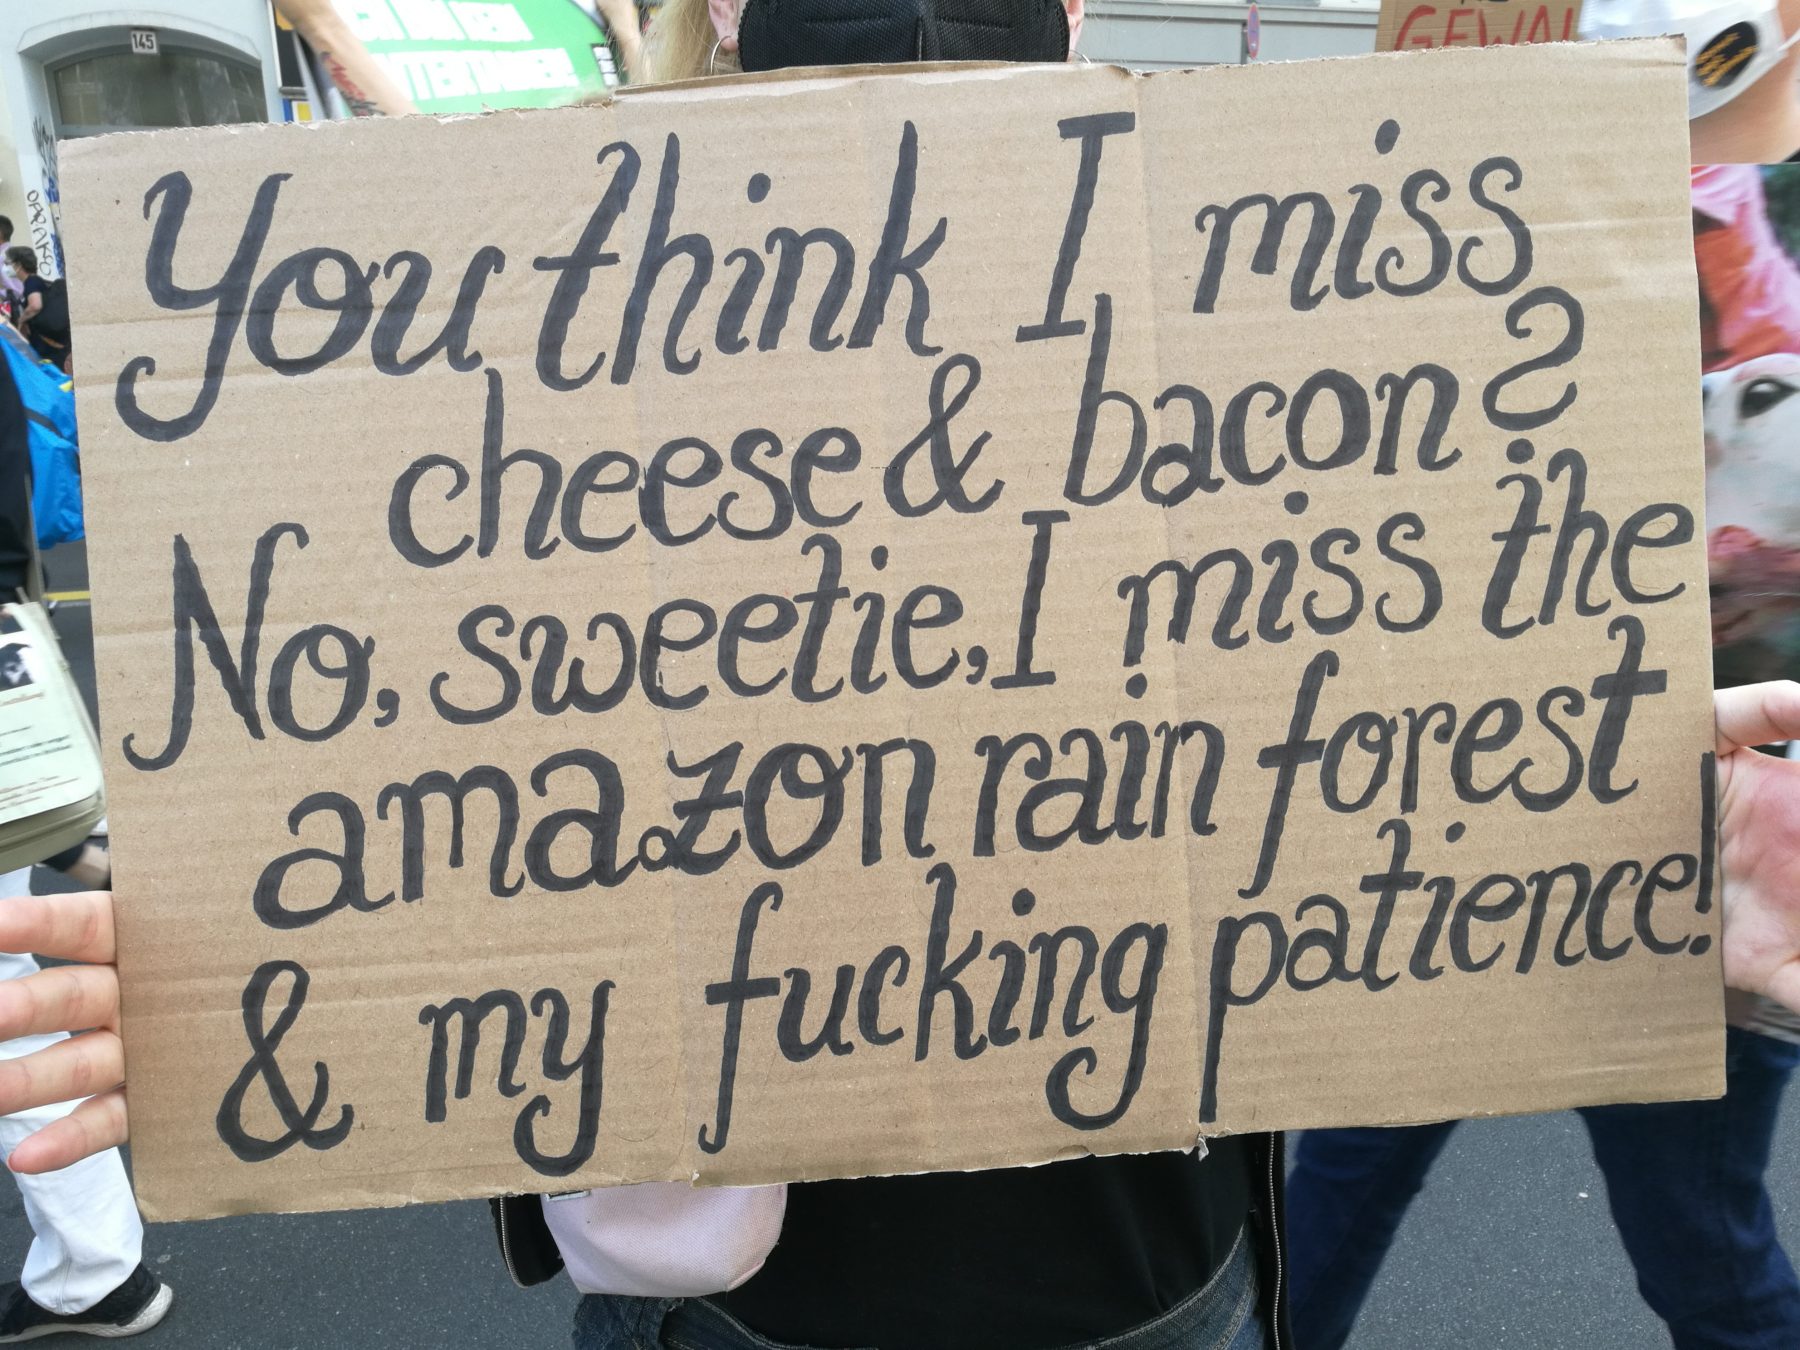 145
GEWAL
You think I miss
cheese & bacon?
No, sweetie, I miss the
amazon rain forest
& my fucking patience!